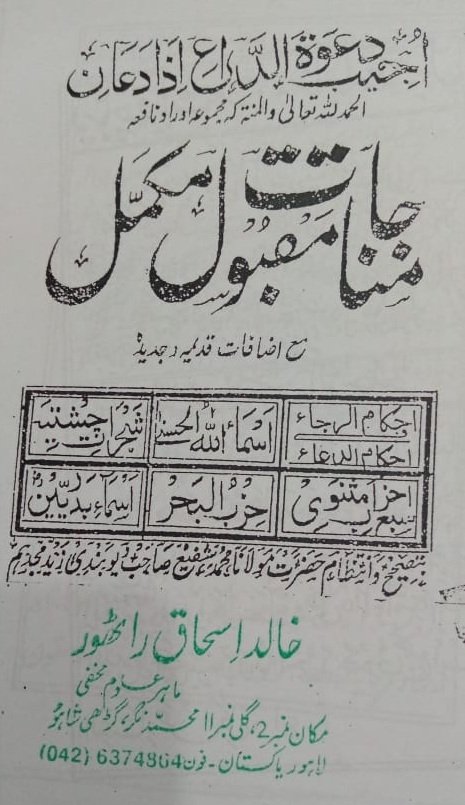 اجیب دعوۃ الداع اذا دعان
الحمد للہ تعالیٰ والمنۃ کہ مجموعہ اوراد نافعہ
مناجات مقبول مکمل
مع اضافات قدیمہ و جدیدہ
احکام الرجاء اسماء اللہ الحسنیٰ شجرات چشتیہ
احکام الدعاء
احزاب مثنوی حزب البحر اسماء بدریین
سبعہ
بتصحیح وانتظام حضرت مولانا محمد شفیع صاحب دیوبندی زید مجدہم
خالد اسحاق راٹھور
ماہر علوم مخفی
مکان نمبر 2، گلی نمبر 11 محمد نگر، گڑھی شاہو
لاہور پاکستان - فون 6374864 (042)